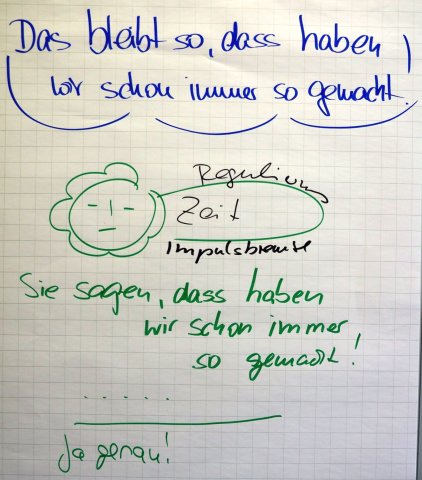 Das bleibt so, dass haben
wir schon immer so gemacht!
Regulierung
Zeit
Impulsbremse
Sie sagen, dass haben
wir schon immer
so gemacht!
.....
Ja genau!